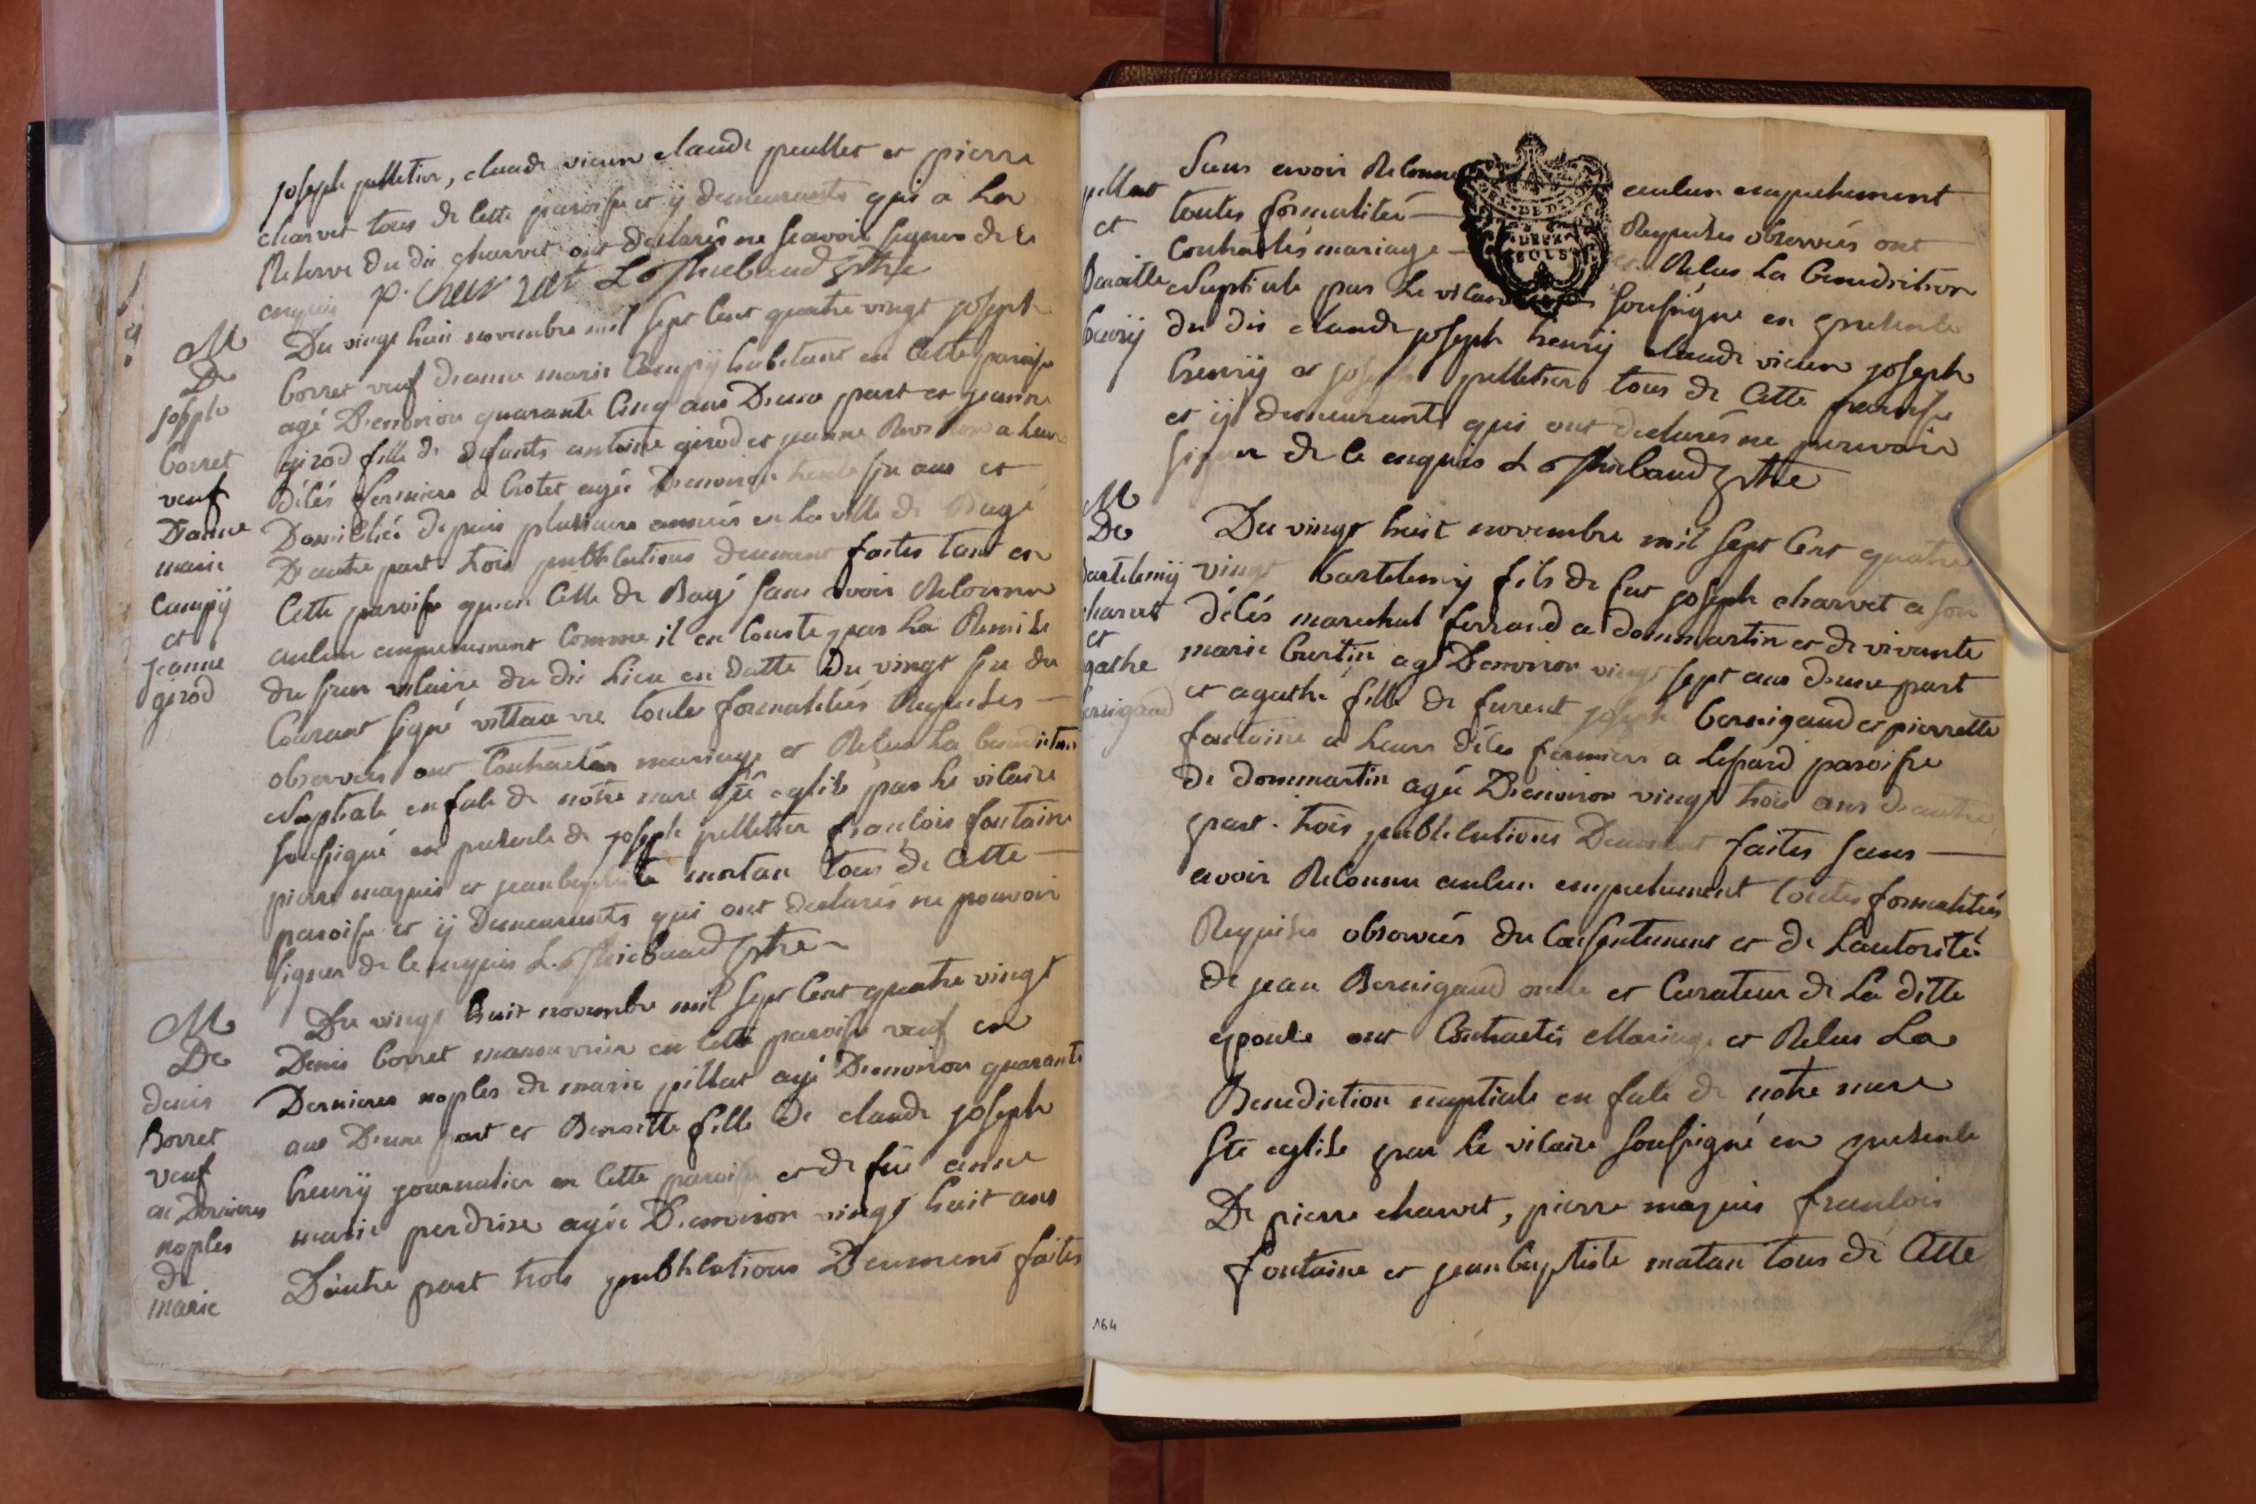 joseph pelletier, claude vieux claude peullet et pierre
charvet tous de cette paroisse et y demeurants qui a La
Reserve du dit charvet ont declarés ne scavoir signer de ce
enquis p. charvet Lo Thiebaud ptre
M
De
joseph
borret
veuf
Danne
marie
Campij
et
jeanne
girod
Du vingt huit novembre mil sept cent quatre vingt joseph
borret veuf deanne marie Campij habitant en cette paroisse
agé Denviron quarante cinq ans D'une part et jeanne
girod fille de defunts antoine girod et jeanne a leur
délés fermiers a crotet agée Denviron trente six ans et
Domiciliée depuis plusieurs années en La ville de Bagé
D'autre part trois publications deument faites tant en
Cette paroisse qu'en Celle de Bagé sans avoir Reconnu
aucun empechement Comme il en Conste par La Remise
du sieur vicaire du dit Lieu en datte Du vingt six du
Courant signé vittaut vre toute formalités Requises —
observées ont Contractés mariage et Relus La benediction
Nuptiale en face de nôtre mere Ste eglise par Le vicaire
soussigné en presence de joseph pelletier françois fontaine
pierre maguis et jean baptiste matan tous de Cette —
paroisse et ij Demeurants qui ont declarés ne pouvoir
signer de ce enquis Lo Thiebaud ptre
M
De
denis
Borret
veuf
en Dernieres
noples
de
marie
Du vingt huit novembre mil sept Cent quatre vingt
Denis borret manouvrier en Cette paroisse veuf en
Dernieres noples de marie pillat agé Denviron quarante
ans D'une part et Benoitte fille De claude joseph
henrij journalier en Cette paroisse et de füe anne
marie perdrix agée Denviron vingt huit ans
D'autre part trois publications Deument faites
pillat
et
Benoitte
henrij
Sans avoir Reconnu aucun empechement
toutes formalités — Requises observées ont
Contractés mariage — et Relus La Benediction
Nuptiale par Le vicaire soussigné en presence
du dit claude joseph henrij claude vieux joseph
henrij et joseph pelletier tous de Cette paroisse
et ij demeurants qui ont declarés ne pouvoir
signer de ce enquis Lo Thiebaud ptre
M
De
bartelemij
charvet
et
agathe
bernigaud
Du vingt huit novembre mil sept Cent quatre
vingt bartelemij fils de feu joseph charvet a son
délés marechal ferrand a dommartin et de vivante
marie burtin agé Denviron vingt sept ans d'une part
et agathe fille de furent joseph bernigaud et pierrette
fontaine a leurs délés fermiers a Lepard paroisse
de dommartin agée Denviron vingt trois ans d'autre
part. trois publications Deument faites sans —
avoir Reconnu aucun empechement toutes formalités
Requises observées du Consentement et de Lautorité
de jean Bernigaud oncle et Curateur de La ditte
epouse ont Contractés Mariage et Relus La
Benediction nuptiale en face de notre mere
Ste eglise par Le vicaire soussigné en presence
De pierre charvet, pierre maguis francois
fontaine et jean baptiste matan tous de Cette
164